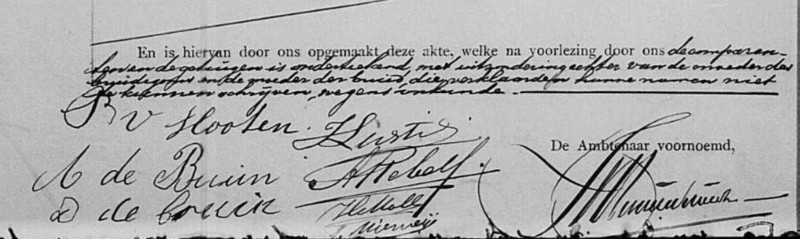 En is hiervan door ons opgemaakt deze akte, welke na voorlezing door ons de comparan-
ten en de getuigen is onderteekend, met uitzondering echter van de moeder des
bruidegoms en de moeder der bruid, die verklaarden hunne namen niet
te kunnen schrijven, wegens onkunde.
B v Hooten.
De Ambtenaar voornoemd,
A de Bruin
A Rebel
D de Bruin